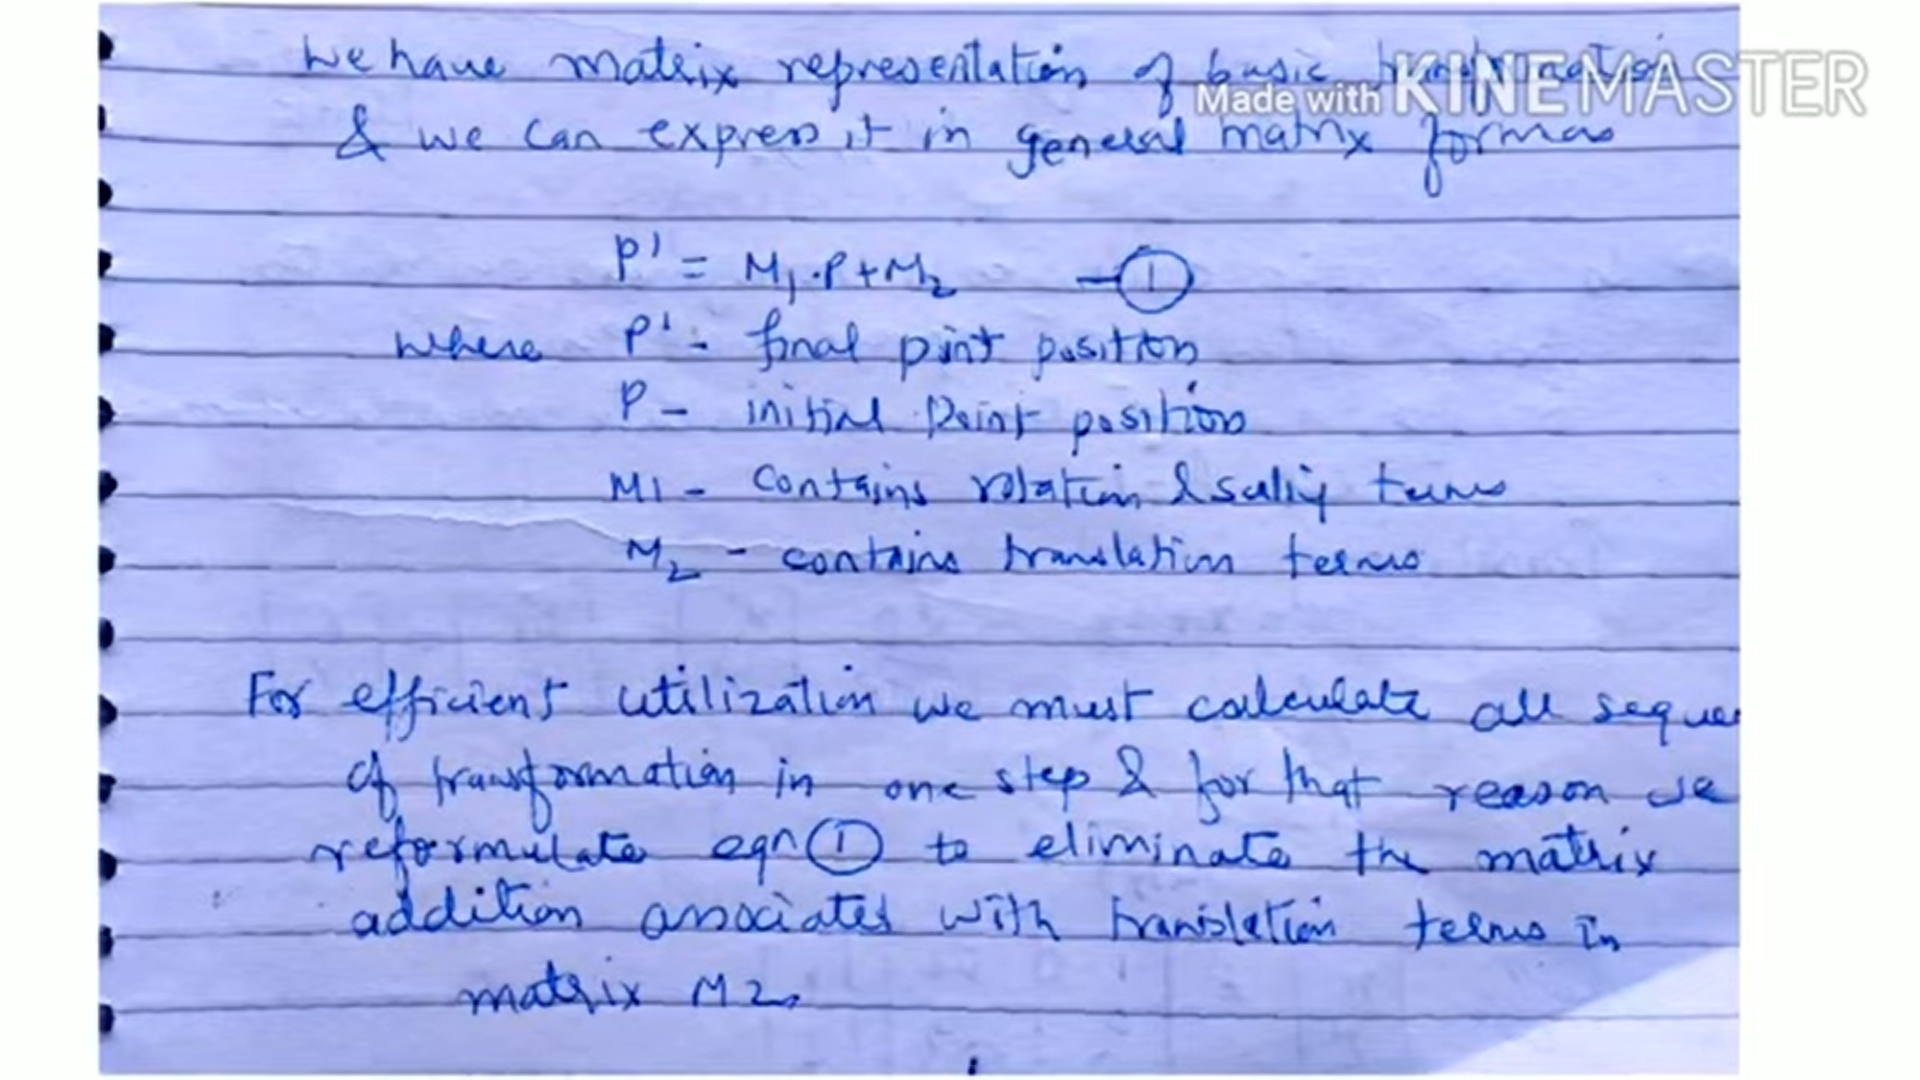 We have matrix representation of basic
Made with KINEMASTER
& we can express it in general matrix form as
P' = M1.P+M2 — 1
where P' - final point position
P - initial Point position
M1 - contains rotation & scaling terms
M2 - contains translation terms
For efficient utilization we must calculate all seque
of transformation in one step & for that reason we
reformulate eqn 1 to eliminate the matrix
addition associated with translation terms in
matrix M2.